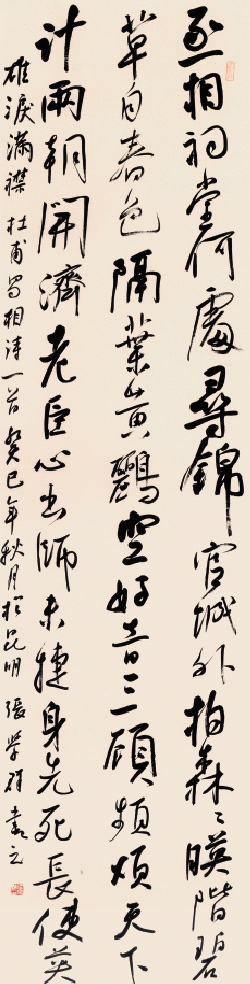 丞相祠堂何處尋錦官城外柏森〻暎階碧
草自春色隔葉黄鸝空好音三顧頻煩天下
計兩朝開濟老臣心出師未捷身先死長使英
雄淚滿襟 杜甫蜀相詩一首 癸巳年秋月於昆明 張學群書之